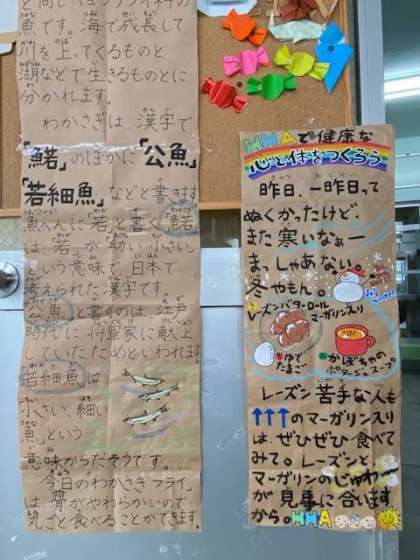 魚です。海で成長して
川を上ってくるものと
湖などで生きるものとに
分かれます。
わかさぎは、漢字で
「鰙」のほかに「公魚」
「若細魚」などと書きます
魚へんに若と書く「鰙」
は、「若」が「幼い・小さい」
という意味で、日本で
考えられた漢字です。
「公魚」と書くのは、江戸
時代に将軍家に献上
していたためといわれます
「若細魚」は、
小さい、細い
魚、という
意味からだそうです。
今日のわかさぎフライ
は、骨がやわらかいので
丸ごと食べることができます。
HHAで健康な
心と体をつくろう
昨日、一昨日って
ぬくかったけど、
また寒いなぁー
ま、しゃあない。
冬やもん。
レーズンバターロール
マーガリン入り
ゆで
たまご
かぼちゃの
ポタージュスープ
レーズン苦手な人も
↑↑↑のマーガリン入り
は、ぜひぜひ食べて
みて。レーズンと
マーガリンのじゅわ〜
が見事に合います
から。HHA